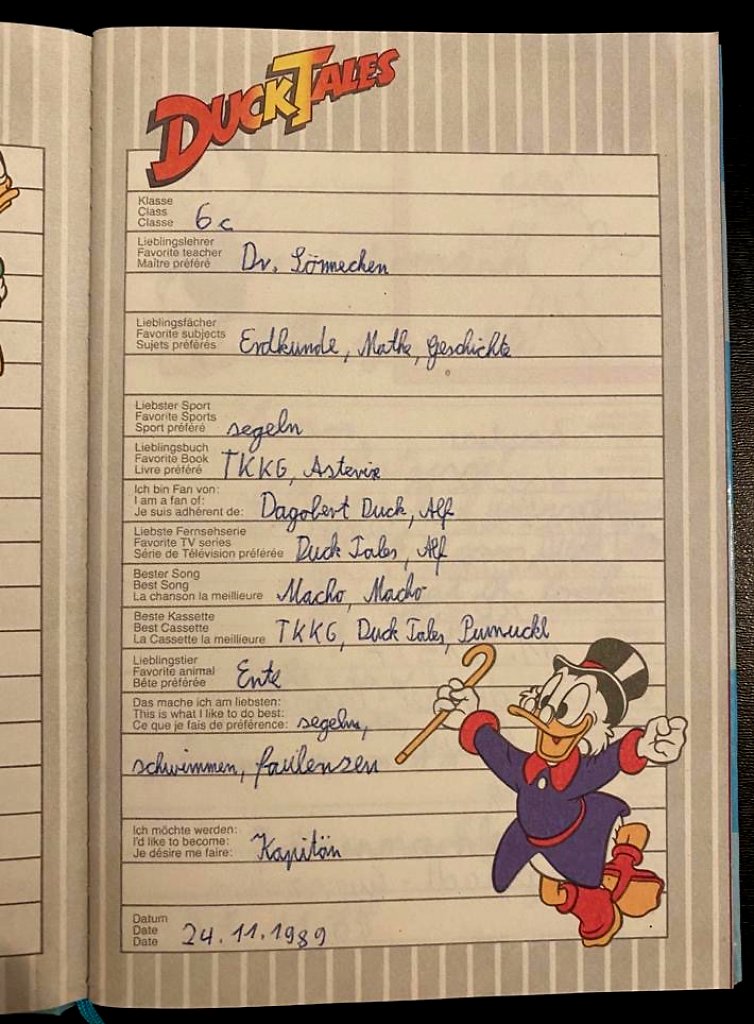 DUCKTALES
Klasse
Class
Classe 6c
Lieblingslehrer
Favorite teacher
Maître préféré Dr. Sönnechen
Lieblingsfächer
Favorite subjects
Sujets préférés Erdkunde, Mathe, Geschichte
Liebster Sport
Favorite Sports
Sport préféré segeln
Lieblingsbuch
Favorite Book
Livre préféré TKKG, Asterix
Ich bin Fan von:
I am a fan of:
Je suis adhérent de: Dagobert Duck, Alf
Liebste Fernsehserie
Favorite TV series
Série de Télévision préférée Duck Tales, Alf
Bester Song
Best Song
La chanson la meilleure Macho, Macho
Beste Kassette
Best Cassette
La Cassette la meilleure TKKG, Duck Tales, Pumuckl
Lieblingstier
Favorite animal
Bête préférée Ente
Das mache ich am liebsten:
This is what I like to do best:
Ce que je fais de préférence: segeln,
schwimmen, faulenzen
Ich möchte werden:
I'd like to become:
Je désire me faire: Kapitän
Datum
Date
Date 24.11.1989